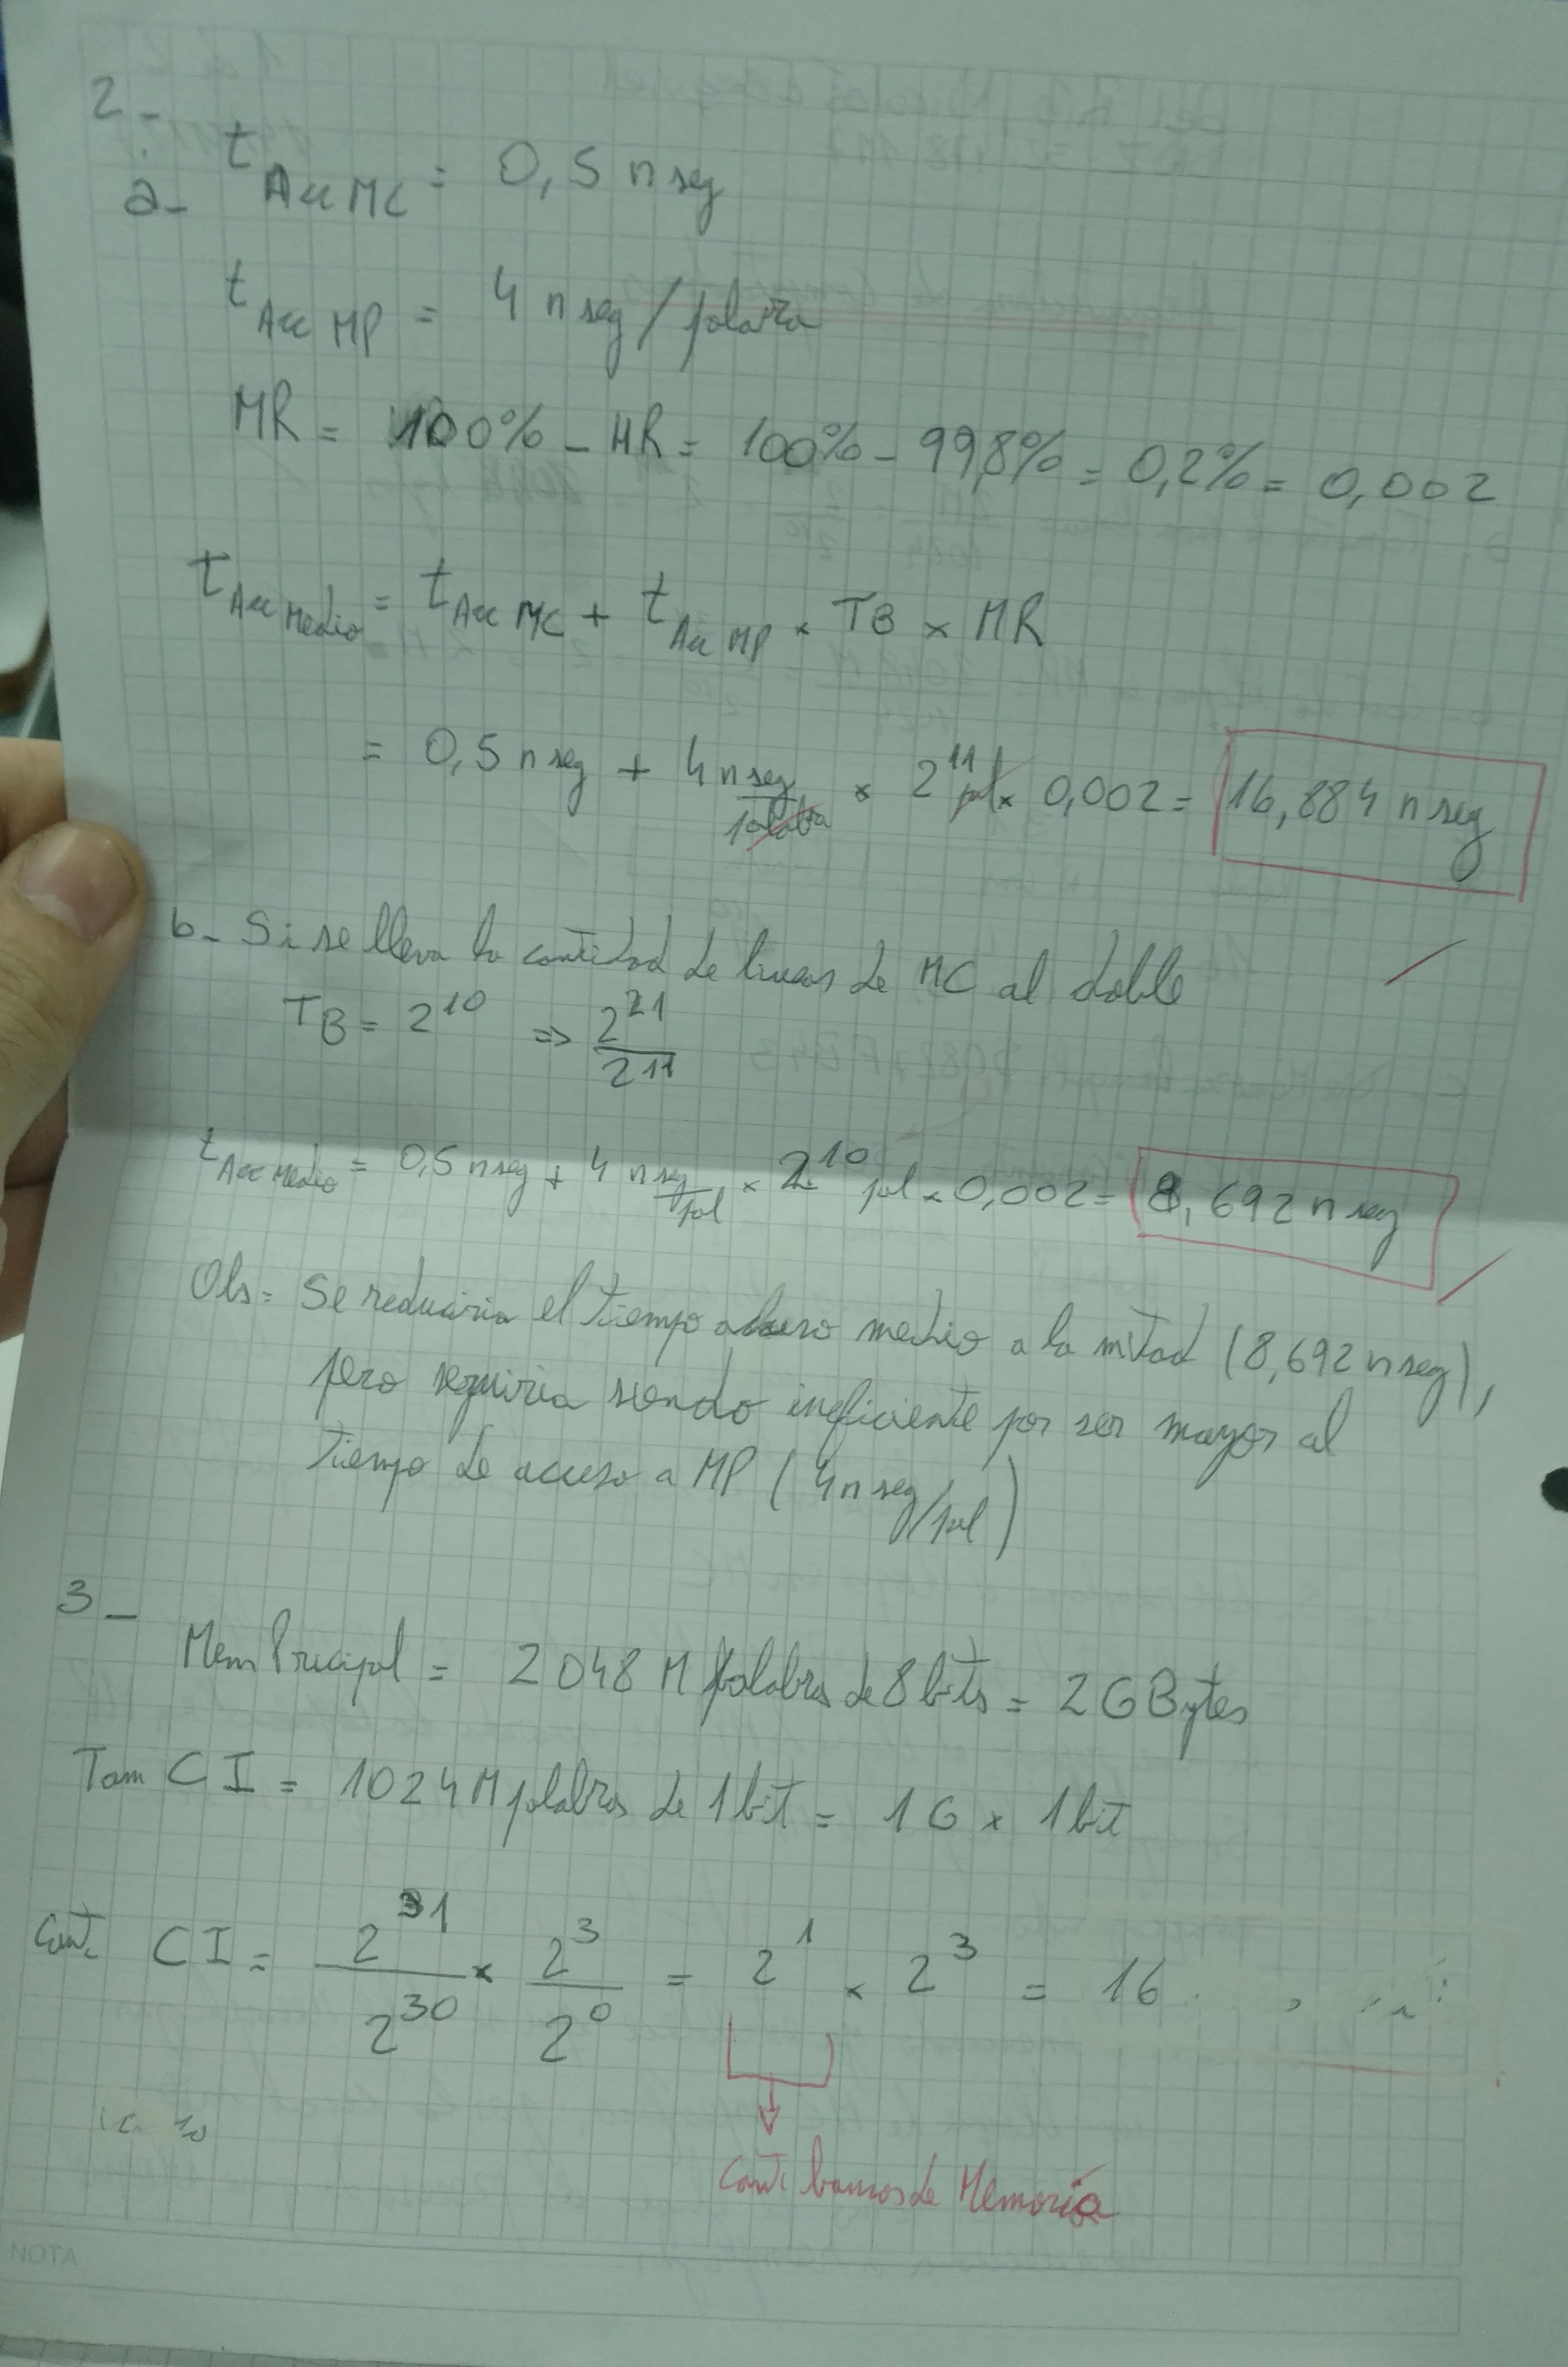 2-
a- tAcc MC = 0,5 nseg
tAcc MP = 4 nseg/palabra
MR = 100% - HR = 100% - 99,8% = 0,2% = 0,002
tAcc Medio = tAcc MC + tAcc MP × TB × MR
= 0,5 nseg + 4 nseg/palabra × 2^11 pal × 0,002 = 16,884 nseg
b- Si se lleva la cantidad de lineas de MC al doble
TB = 2^10 => 2^21/2^11
tAcc Medio = 0,5 nseg + 4 nseg/pal × 2^10 pal × 0,002 = 8,692 nseg
Obs = Se reduciria el tiempo acceso medio a la mitad (8,692 nseg),
pero seguiria siendo ineficiente por ser mayor al
tiempo de acceso a MP (4 nseg/pal)
3-
Mem Principal = 2048 M palabras de 8 bits = 2 GBytes
Tam CI = 1024 M palabras de 1 bit = 1 G × 1 bit
Cant. CI = 2^31/2^30 × 2^3/2^0 = 2^1 × 2^3 = 16
Cant bancos de Memoria
NOTA